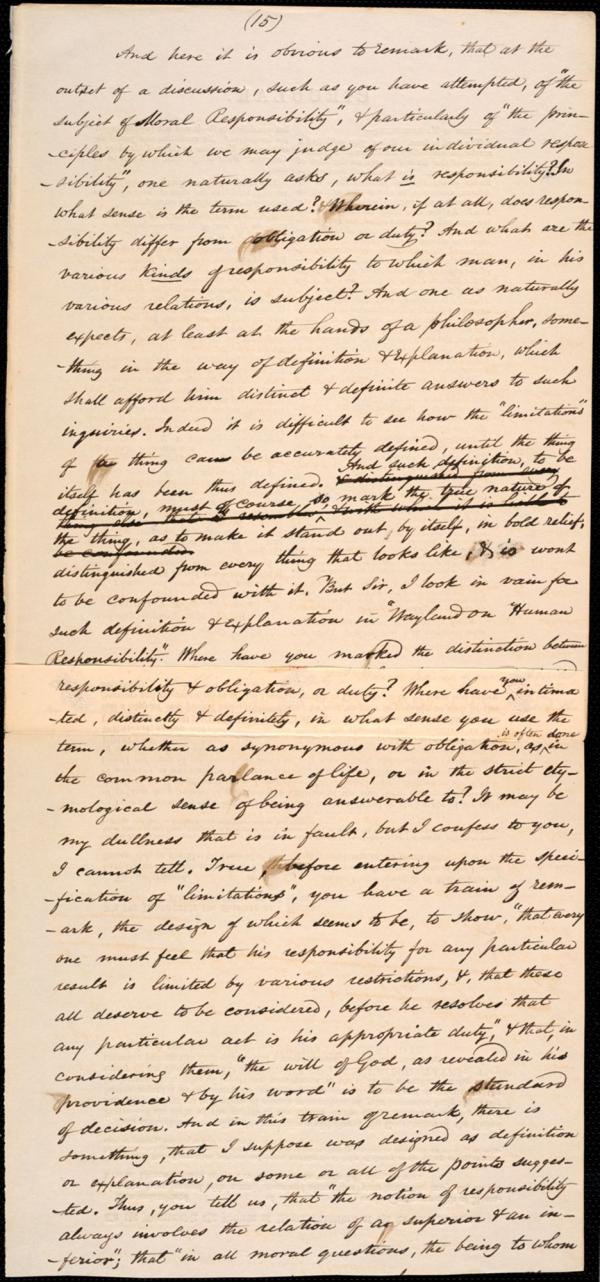 (15)
And here it is obvious to remark, that at the
outset of a discussion, such as you have attempted, of "the
subject of Moral Responsibility", & particularly of "the prin-
-ciples by which we may judge of our individual respon
-sibility", one naturally asks, what is responsibility? In
what sense is the term used? Wherein, if at all, does respon-
-sibility differ from obligation or duty? And what are the
various kinds of responsibility to which man, in his
various relations, is subject? And one as naturally
expects, at least at the hands of a philosopher, some-
-thing in the way of definition & explanation, which
shall afford him distinct & definite answers to such
inquiries. Indeed it is difficult to see how the "limitations"
of a thing can be accurately defined, until the thing
itself has been thus defined. And such definition, to be
& distinguished from every
definition, must of course, so mark the true nature of
thing else that it resembles & with what it is liable to
the thing, as to make it stand out, by itself, in bold relief,
be confounded.
distinguished from every thing that looks like, & is wont
to be confounded with it. But Sir, I look in vain for
such definition & explanation in "Wayland on Human
Responsibility". Where have you marked the distinction between
responsibility & obligation, or duty? Where have you intima
-ted, distinctly & definitely, in what sense you use the
term, whether as synonymous with obligation, as is often done in
the common parlance of life, or in the strict ety-
-mological sense of being answerable to? It may be
my dullness that is in fault, but I confess to you,
I cannot tell. True, before entering upon the speci-
-fication of "limitations", you have a train of rem-
-ark, the design of which seems to be, to show, "that every
one must feel that his responsibility for any particular
result is limited by various restrictions, &, that these
all deserve to be considered, before he resolves that
any particular act is his appropriate duty", & that, in
considering them, "the will of God, as revealed in his
providence & by his word" is to be the standard
of decision. And in this train of remark, there is
something, that I suppose was designed as definition
or explanation, on some or all of the points sugges-
-ted. Thus, you tell us, that "the notion of responsibility
always involves the relation of a superior & an in-
-ferior"; that "in all moral questions, the being to whom